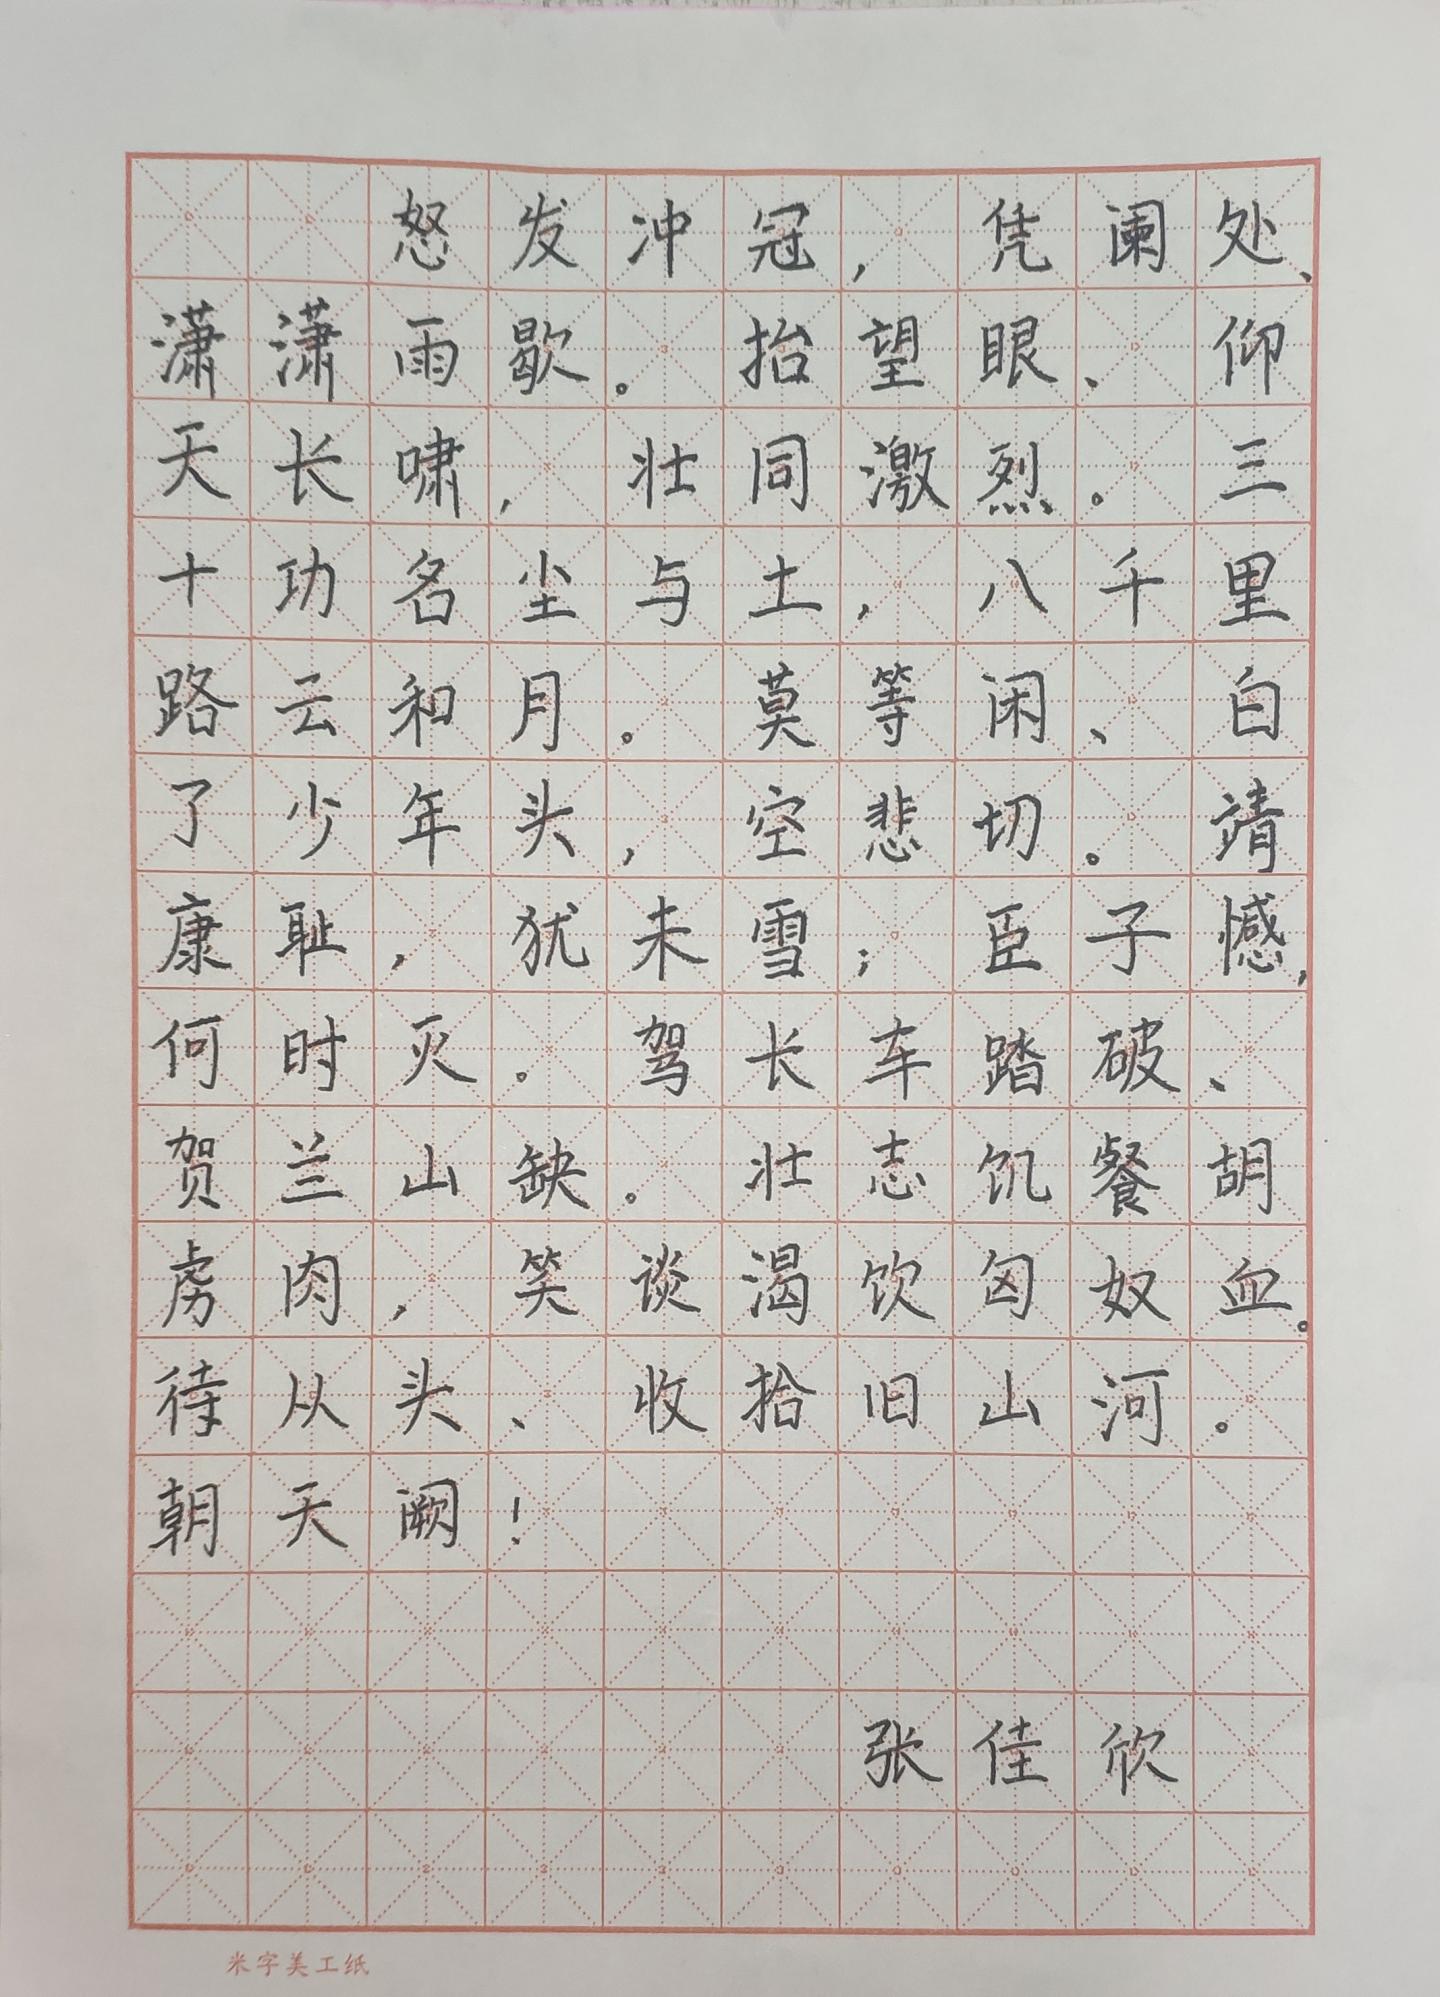 怒发冲冠，凭阑处、
潇潇雨歇。抬望眼、仰
天长啸，壮同激烈。三
十功名尘与土，八千里
路云和月。莫等闲、白
了少年头，空悲切。靖
康耻，犹未雪；臣子憾，
何时灭。驾长车踏破、
贺兰山缺。壮志饥餐胡
虏肉，笑谈渴饮匈奴血。
待从头、收拾旧山河。
朝天阙！
张佳欣
米字美工纸